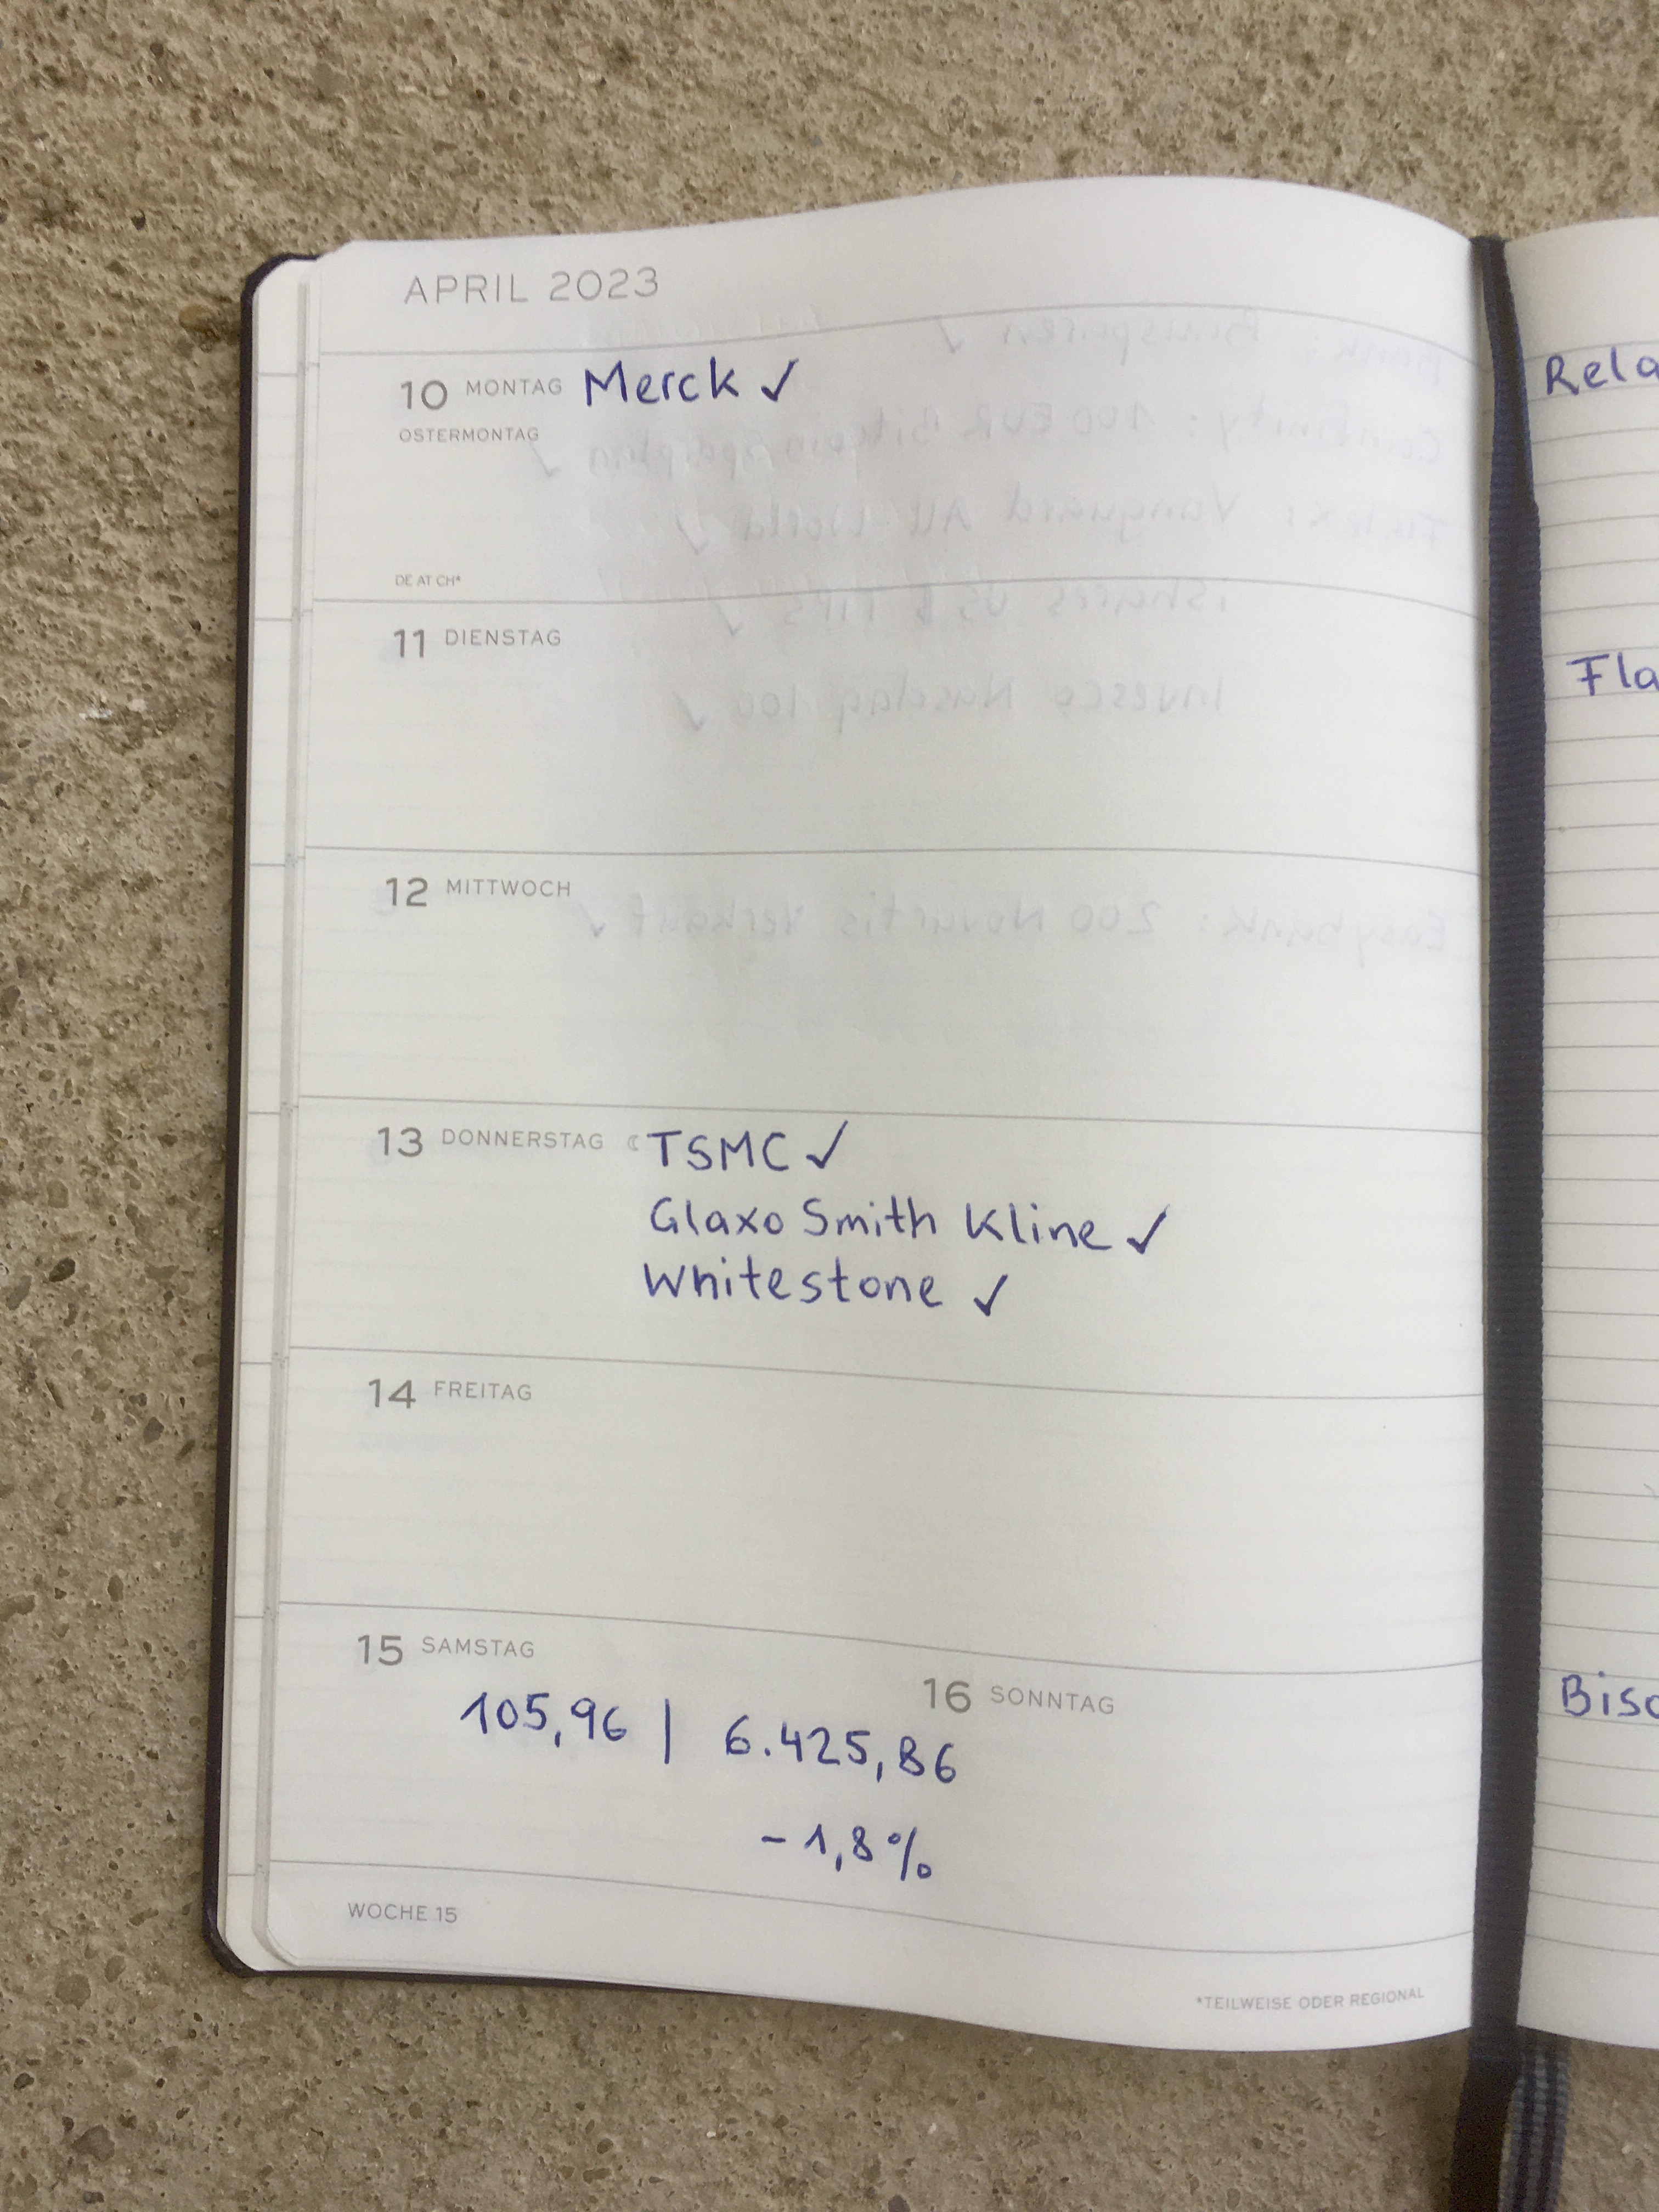 APRIL 2023
10 MONTAG Merck ✓
OSTERMONTAG
DE AT CH*
11 DIENSTAG
12 MITTWOCH
13 DONNERSTAG ☾ TSMC ✓
Glaxo Smith Kline ✓
Whitestone ✓
14 FREITAG
15 SAMSTAG
16 SONNTAG
105,96 | 6.425,86
-1,8%
WOCHE 15
*TEILWEISE ODER REGIONAL
Rela
Fla
Bisc